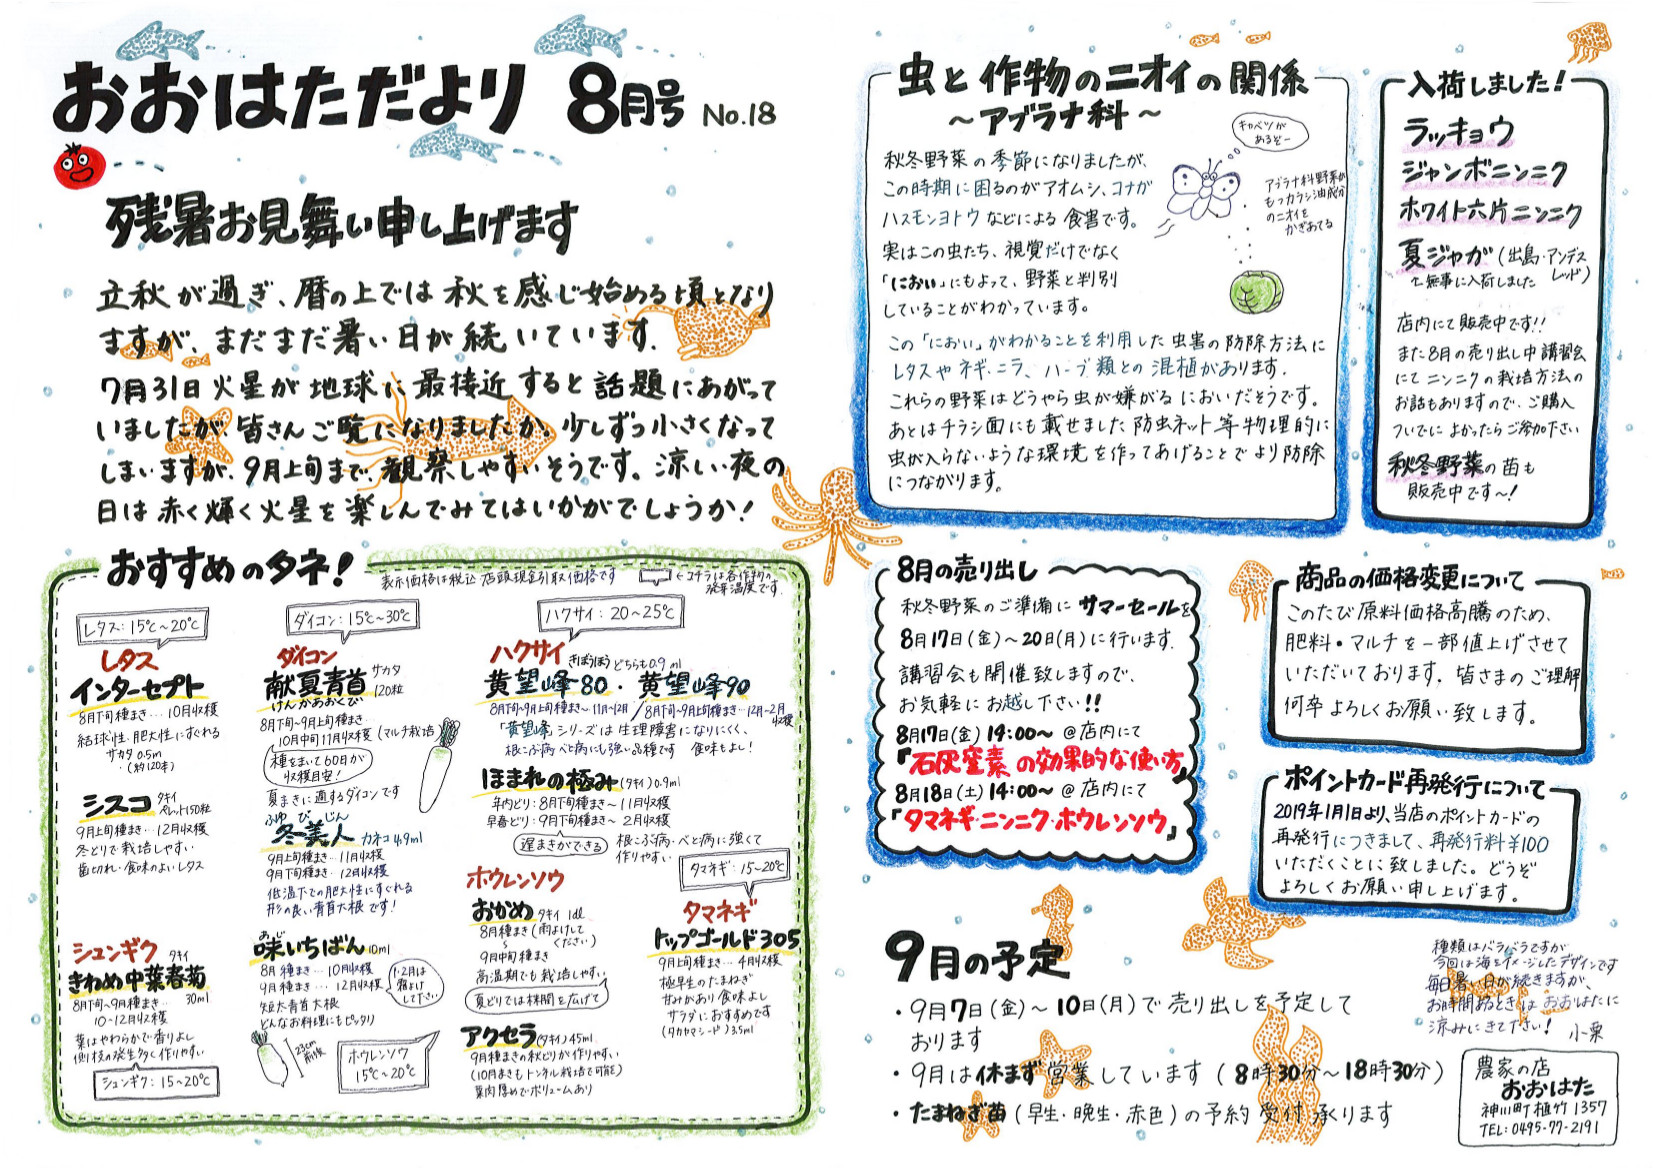 おおはただより 8月号 No.18
残暑お見舞い申し上げます
立秋が過ぎ、暦の上では秋を感じ始める頃となり
ますが、まだまだ暑い日が続いています。
7月31日火星が地球に最接近すると話題にあがって
いましたが、皆さんご覧になりましたか。少しずつ小さくなって
しまいますが、9月上旬まで、観察しやすいそうです。涼しい夜の
日は赤く輝く火星を楽しんでみてはいかがでしょうか!
おすすめのタネ!
表示価格は税込 店頭現金引取価格です
←コチラは各作物の
発芽温度です
レタス:15℃~20℃
レタス
インターセプト
8月下旬種まき…10月収穫
結球性・肥大性にすぐれる
サカタ 0.5ml
(約120本)
シスコ タキイ
ペレット150粒
9月上旬種まき…12月収穫
冬どりで栽培しやすい
歯切れ・食味のよいレタス
シュンギク タキイ
きわめ中葉春菊
30ml
8月下旬~9月種まき…
10~12月収穫
葉はやわらかで香りよし
側枝の発生多く作りやすい
シュンギク:15~20℃
ダイコン:15℃~30℃
ダイコン
献夏青首 サカタ
120粒
けんかあおくび
8月下旬~9月上旬種まき…
10月中旬11月収穫(マルチ栽培)
種をまいて60日が
収穫目安!
夏まきに適するダイコンです
ふゆ び じん
冬美人 カネコ 4.9ml
9月上旬種まき…11月収穫
9月下旬種まき…12月収穫
低温下での肥大性にすぐれる
形の良い青首大根です!
あじ
味いちばん 10ml
8月種まき…10月収穫
9月種まき…12月収穫
短太青首大根
どんなお料理にもピッタリ
1・2月は
霜よけ
して下さい
23cm
前後
ホウレンソウ
15℃~20℃
ハクサイ:20~25℃
ハクサイ きぼうほう どちらも0.9ml
黄望峰80・黄望峰90
8月下旬~9月上旬種まき~11月~12月/8月下旬~9月上旬種まき…12月~2月
収穫
「黄望峰」シリーズは生理障害になりにくく、
根こぶ病・べと病にも強い品種です 食味もよし!
ほまれの極み(タキイ)0.9ml
年内どり:8月下旬種まき~11月収穫
早春どり:9月下旬種まき~2月収穫
遅まきができる
根こぶ病・べと病に強くて
作りやすい
ホウレンソウ
おかめ タキイ 1dl
8月種まき(雨よけして
ください)
~
9月中旬種まき
高温期でも栽培しやすい
夏どりでは株間を広げて
アクセラ(タキイ)45ml
9月種まきの秋どりが作りやすい
(10月まきもトンネル栽培で可能)
葉肉厚めでボリュームあり
タマネギ:15~20℃
タマネギ
トップゴールド305
9月上旬種まき…4月収穫
極早生のたまねぎ
甘みがあり食味よし
サラダにおすすめです
(タカヤマシード)3.5ml
虫と作物のニオイの関係
~アブラナ科~
秋冬野菜の季節になりましたが、
この時期に困るのがアオムシ、コナガ
ハスモンヨトウなどによる食害です。
実はこの虫たち、視覚だけでなく
「におい」にもよって、野菜と判別
していることがわかっています。
キャベツが
あるぞー
アブラナ科野菜が
もつカラシ油成分
のニオイを
かぎあてる
この「におい」がわかることを利用した虫害の防除方法に
レタスやネギ、ニラ、ハーブ類との混植があります。
これらの野菜はどうやら虫が嫌がるにおいだそうです。
あとはチラシ面にも載せました防虫ネット等物理的に
虫が入らないような環境を作ってあげることでより防除
につながります。
入荷しました!
ラッキョウ
ジャンボニンニク
ホワイト六片ニンニク
夏ジャガ(出島・アンデス
レッド)
で無事に入荷しました
店内にて販売中です!!
また8月の売り出し中講習会
にてニンニクの栽培方法の
お話もありますので、ご購入
ついでによかったらご参加下さい
秋冬野菜の苗も
販売中です~!
8月の売り出し
秋冬野菜のご準備にサマーセールを
8月17日(金)~20日(月)に行います。
講習会も開催致しますので、
お気軽にお越し下さい!!
8月17日(金)14:00~ @店内にて
「石灰窒素の効果的な使い方」
8月18日(土)14:00~ @店内にて
「タマネギ・ニンニク・ホウレンソウ」
商品の価格変更について
このたび原料価格高騰のため、
肥料・マルチを一部値上げさせて
いただいております。皆さまのご理解
何卒よろしくお願い致します。
ポイントカード再発行について
2019年1月1日より、当店のポイントカードの
再発行につきまして、再発行料¥100
いただくことに致しました。どうぞ
よろしくお願い申し上げます。
9月の予定
・9月7日(金)~10日(月)で売り出しを予定して
おります
・9月は休まず営業しています(8時30分~18時30分)
・たまねぎ苗(早生・晩生・赤色)の予約受付承ります
種類はバラバラですが
今回は海をイメージしたデザインです
毎日暑い日が続きますが、
お時間あるときはおおはたに
涼みにきて下さい! 小栗
農家の店
おおはた
神川町植竹1357
TEL:0495-77-2191